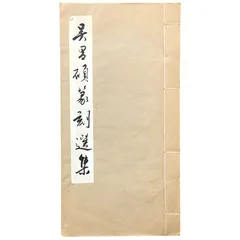 吴昌碩篆刻選集